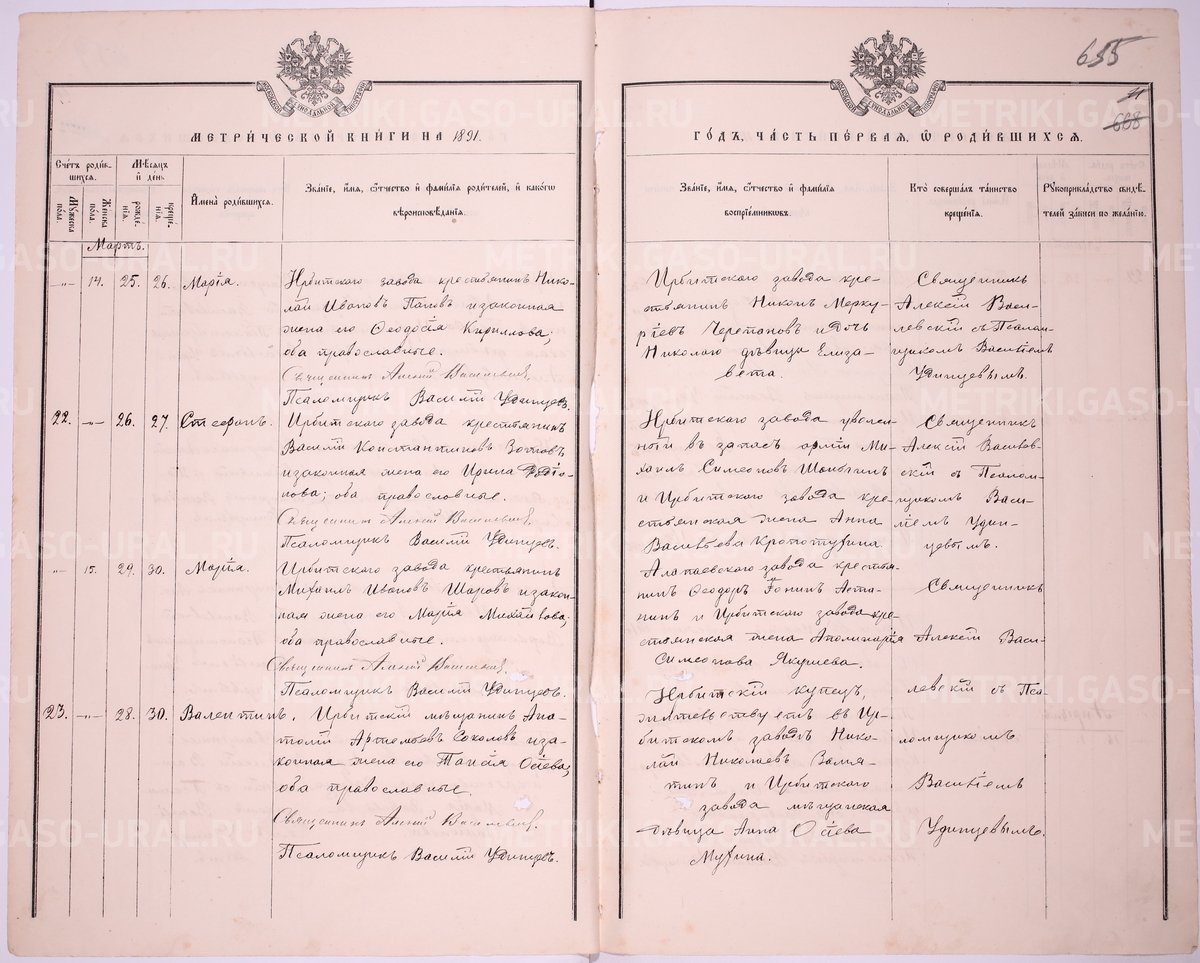 655
31
668
МЕТРИ́ЧЕСКОЙ КНИ́ГИ НА 1891.
ГО́ДЪ, ЧА́СТЬ ПЕ́РВАЯ, Ѡ РОДИ́ВШИХСЯ.
Сче́тъ роди́в-
шихся.
Мѣ́сяцъ
и́ день
Мужеска
по́ла.
Женска
пола.
рожде́-
нїя.
креще́-
нїя.
И҆мена̀ роди́вшихся.
Зва́нїе, и҆́мя, ѻ҆́тчество и҆ фами́лїя роди́телей, и҆ како́гѡ
вѣроисповѣ́данїя.
Зва́нїе, и҆́мя, ѻ҆́тчество и҆ фами́лїя
воспрїе́мникѡвъ.
Кто̀ соверша́лъ та́инство
креще́нїя.
Рꙋкоприкла́дство свидѣ́-
телей за́писи по жела́нїю.
Мартъ.
-„- 14. 25. 26. Марія.
Ирбитскаго завода крестьянинъ Нико-
лай Ивановъ Поповъ и законная
жена его Ѳеодосія Кириллова;
оба православные.
Священникъ Алексій Василевскій.
Псаломщикъ Василій Удинцевъ.
Ирбитскаго завода кре-
стьянинъ Никонъ Мерку-
ріевъ Черепановъ и дочь
Николаго дѣвица Елиза-
вета.
Священникъ
Алексій Васи-
левскій съ Псалом-
щикомъ Василіемъ
Удинцевымъ.
22. -„- 26. 27. Стефанъ.
Ирбитскаго завода крестьянинъ
Василій Константиновъ Зотовъ
и законная жена его Ирина
нова; оба православные.
Священникъ Алексій Василевскій.
Псаломщикъ Василій Удинцевъ.
Ирбитскаго завода уволен-
ный въ запасъ арміи Ми-
хаилъ Симеоновъ
и Ирбитскаго завода кре-
стьянская жена Анна
Васильева Кропотухина.
Священникъ
Алексій Василев-
скій съ Псалом-
щикомъ Васи-
ліемъ Удин-
цевымъ.
-„- 15. 29. 30. Марія.
Ирбитскаго завода крестьянинъ
Михаилъ Ивановъ Шаровъ и закон-
ная жена его Марія Михайлова;
оба православные.
Священникъ Алексій Василевскій.
Псаломщикъ Василій Удинцевъ.
Алапаевскаго завода крестья-
нинъ Ѳеодоръ Іонинъ Аста-
нинъ и Ирбитскаго завода кре-
стьянская жена Аполинарія
Симеонова Якушева.
Священникъ
Алексій Васи-
левскій съ Пса-
ломщикомъ
Василіемъ
Удинцевымъ.
23. -„- 28. 30. Валентинъ.
Ирбитскій мѣщанинъ Ана-
толій Артемьевъ Соколовъ и за-
конная жена его Таисія Осіева;
оба православные.
Священникъ Алексій Василевскій.
Псаломщикъ Василій Удинцевъ.
Ирбитскій купецъ,
жительствуетъ въ Ир-
битскомъ заводѣ Нико-
лай Николаевъ Вамя-
тинъ и Ирбитскаго
завода мѣщанская
дѣвица Анна Осіева
Мухина.
METRIKI.GASO-URAL.RU